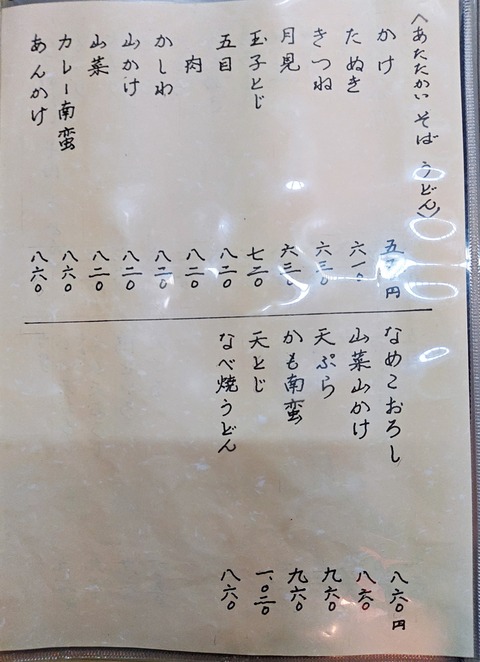 〈あたたかい そば うどん〉
かけ
たぬき 六一〇
きつね 六三〇
月見 六三〇
玉子とじ 七二〇
五目 八二〇
肉 八二〇
かしわ 八二〇
山かけ 八二〇
山菜 八二〇
カレー南蛮 八六〇
あんかけ 八六〇
なめこおろし 八六〇円
山菜山かけ 八六〇
天ぷら 九六〇
かも南蛮 九六〇
天とじ 一、〇二〇
なべ焼うどん 八六〇